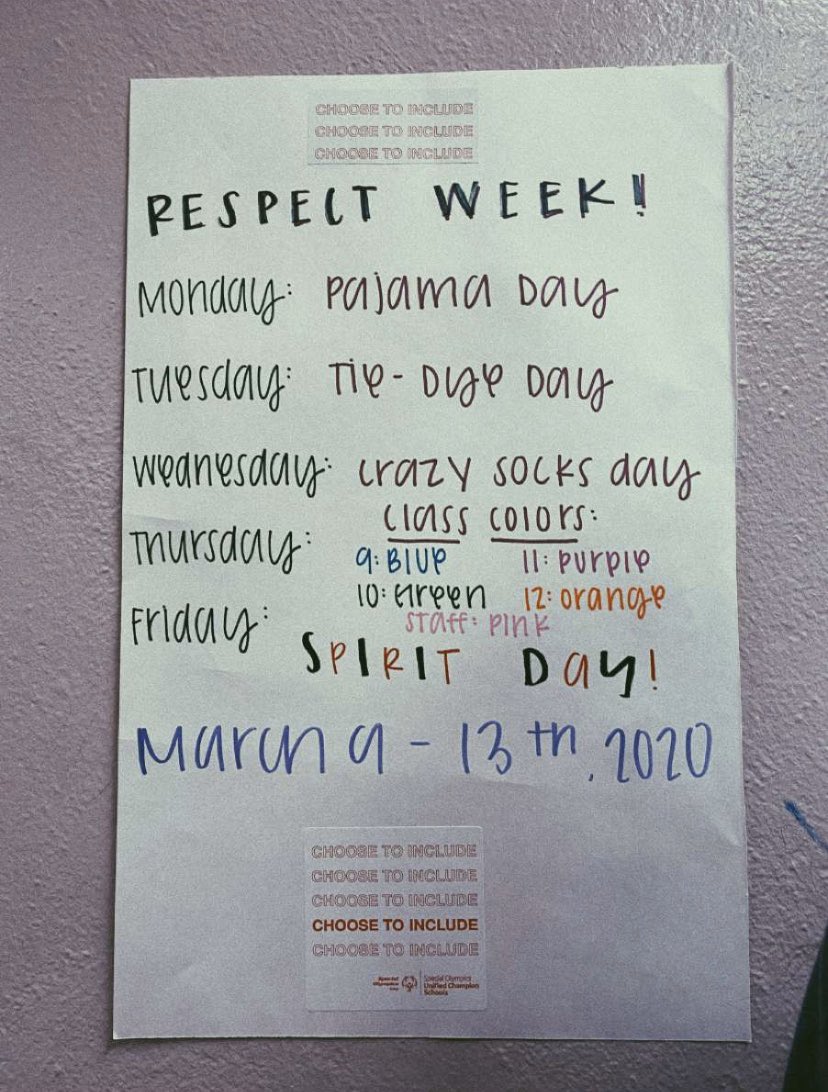 CHOOSE TO INCLUDE
CHOOSE TO INCLUDE
CHOOSE TO INCLUDE
RESPECT WEEK!
Monday: Pajama Day
Tuesday: Tie-Dye Day
Wednesday: Crazy socks day
Thursday: Class colors:
9: Blue 11: Purple
10: Green 12: orange
Staff: Pink
Friday: SPIRIT DAY!
March 9 - 13th, 2020
CHOOSE TO INCLUDE
CHOOSE TO INCLUDE
CHOOSE TO INCLUDE
CHOOSE TO INCLUDE
CHOOSE TO INCLUDE
Special Olympics
Unified Champion
Schools